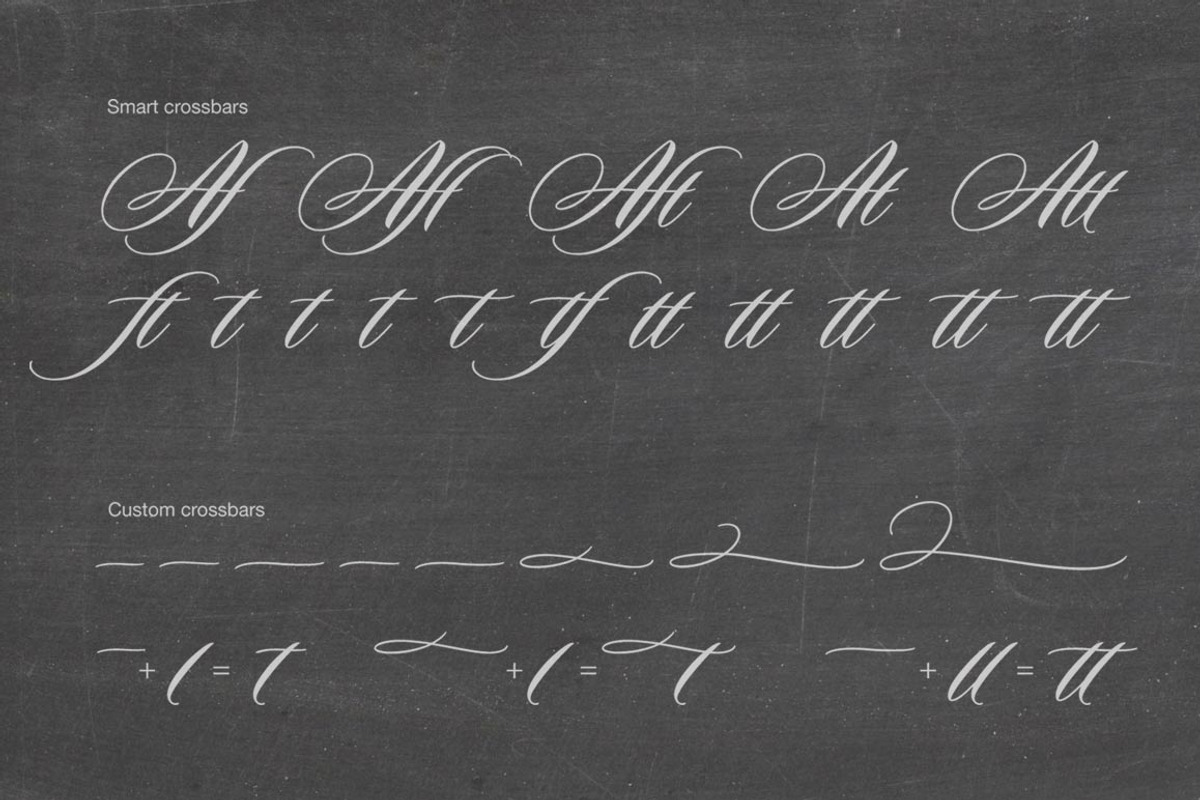 Smart crossbars
Af Aff Aft At Att
ft t t t t tf tt tt tt tt tt
Custom crossbars
+ = t + = t + = tt